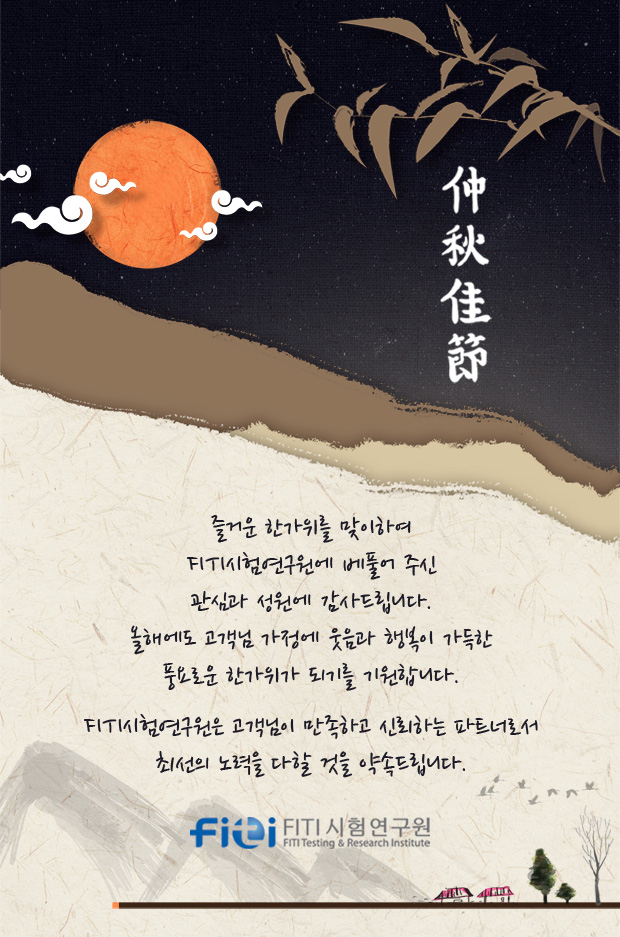 仲秋佳節
즐거운 한가위를 맞이하여
FITI시험연구원에 베풀어 주신
관심과 성원에 감사드립니다.
올해에도 고객님 가정에 웃음과 행복이 가득한
풍요로운 한가위가 되기를 기원합니다.
FITI시험연구원은 고객님이 만족하고 신뢰하는 파트너로서
최선의 노력을 다할 것을 약속드립니다.
fiti FITI 시험연구원
FITI Testing & Research Institute